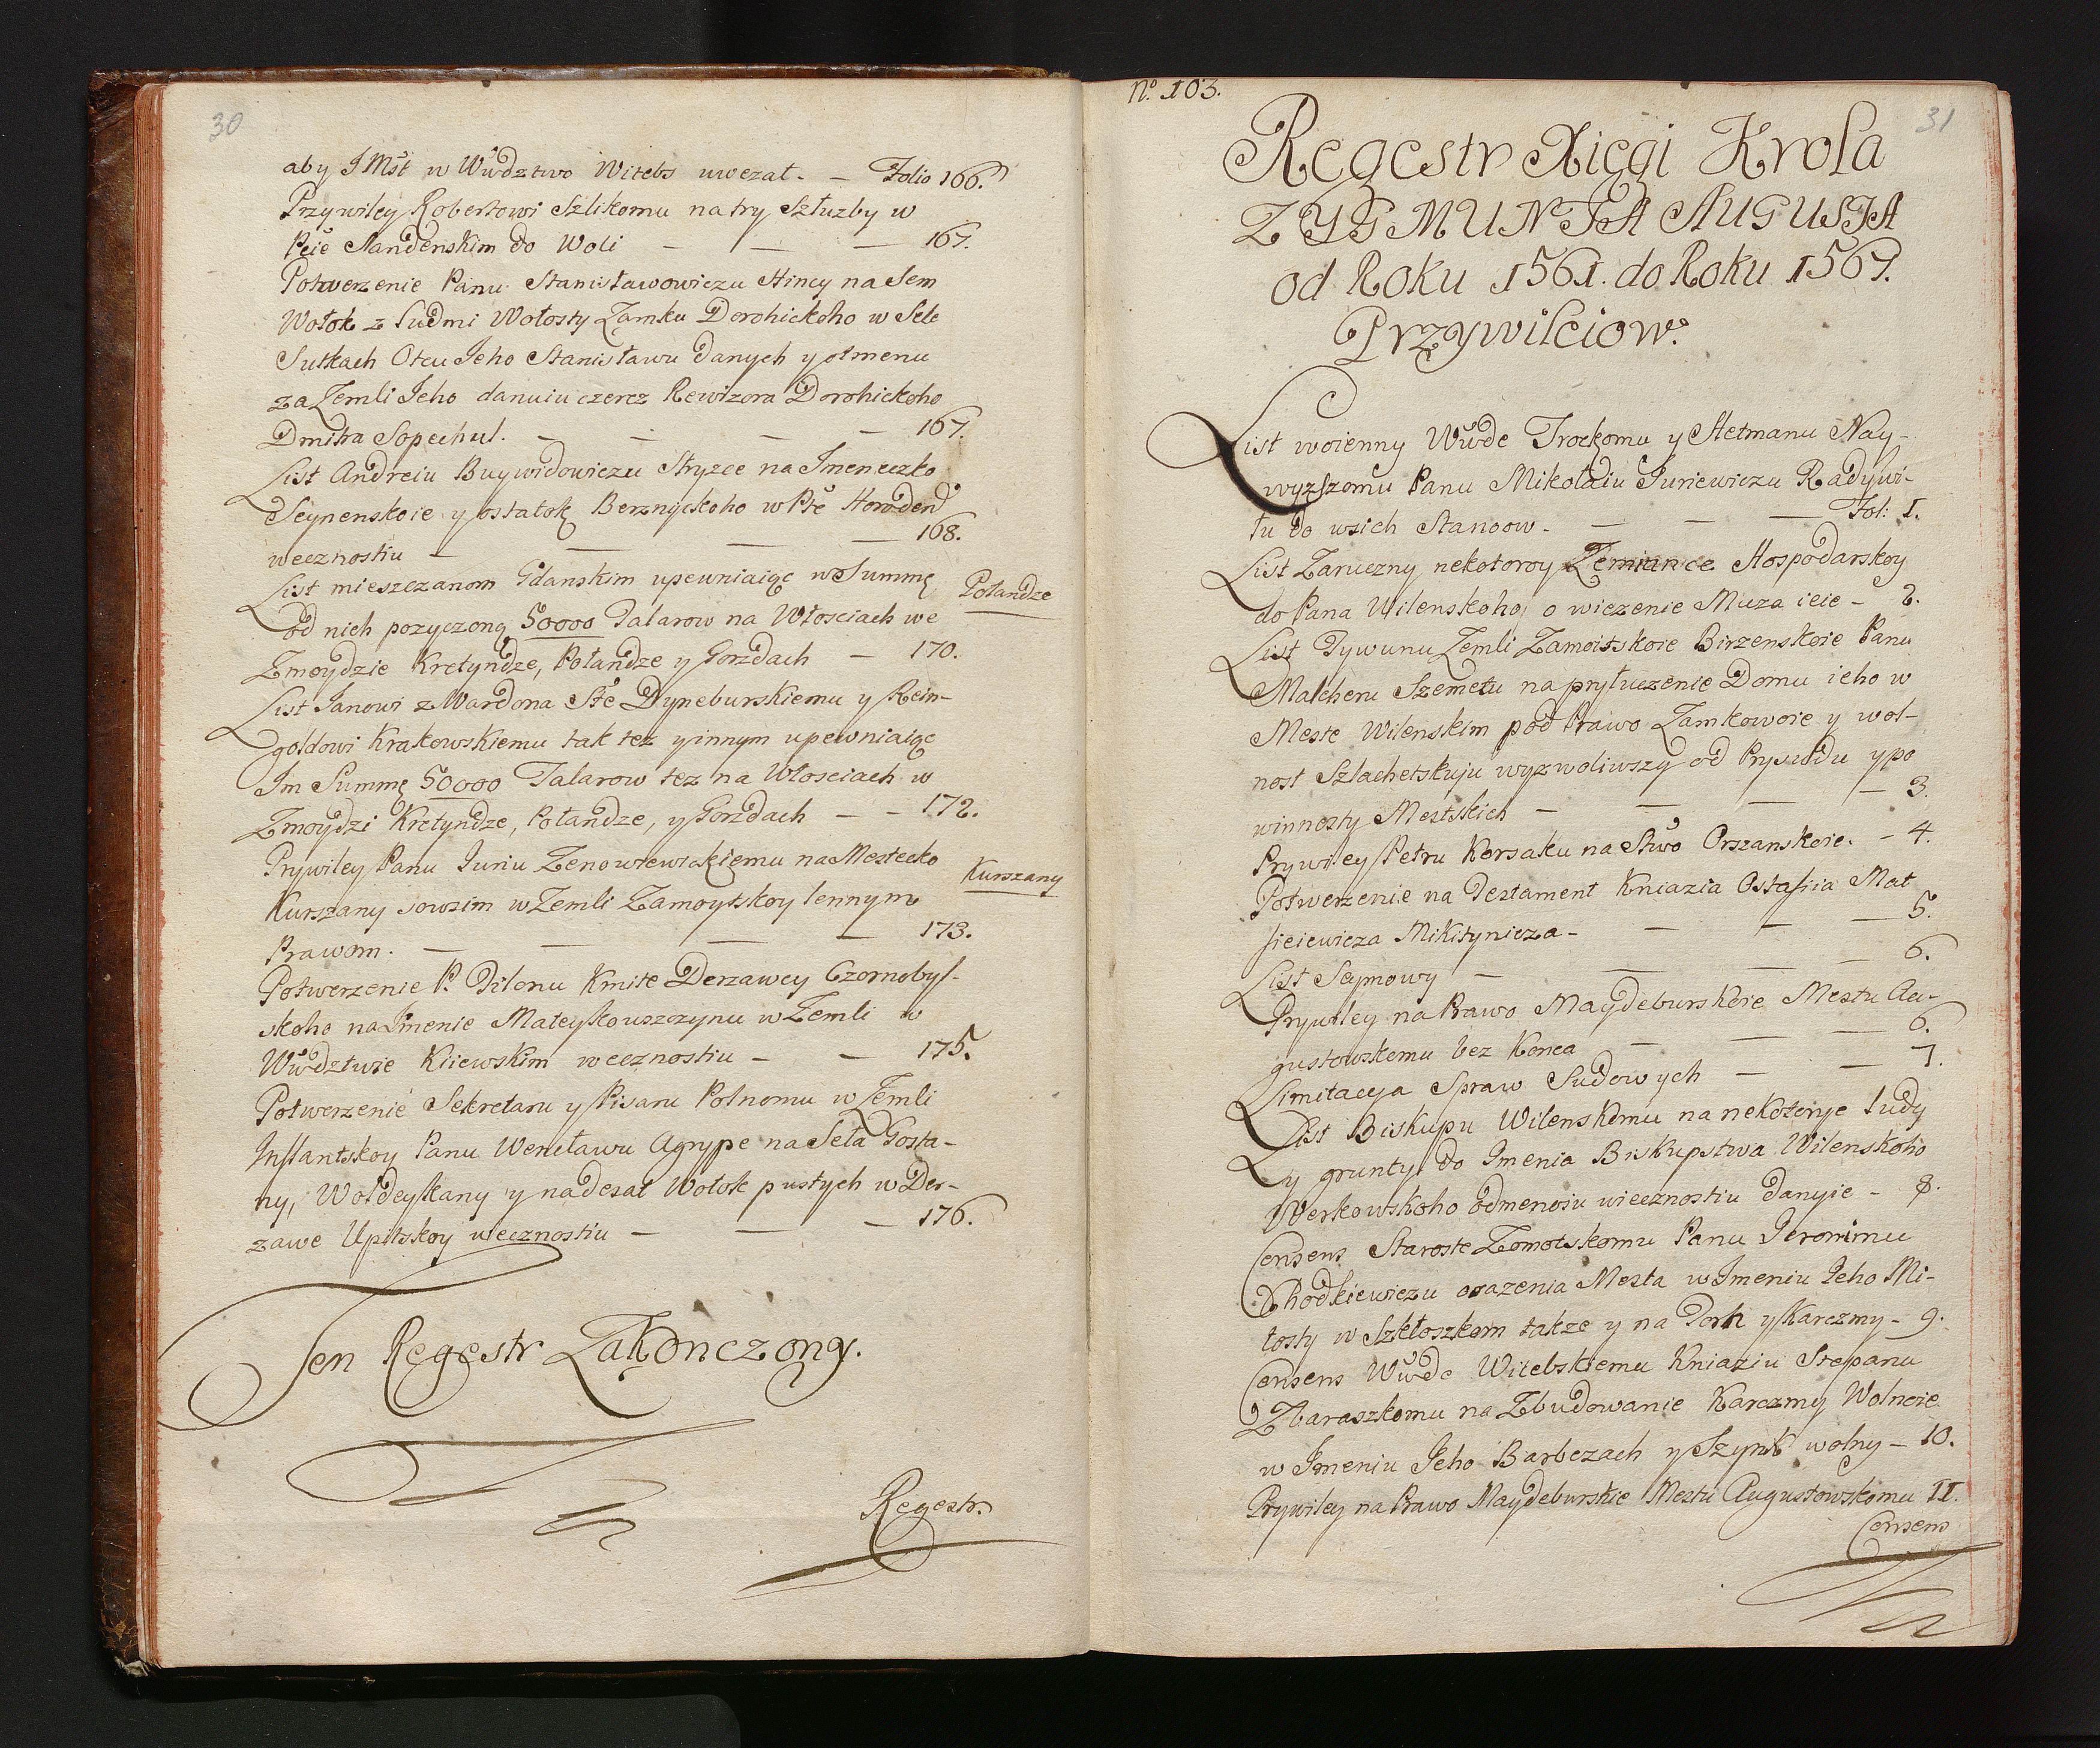 30
aby JMść w Wwdztwo Witebs uwezał. — Folio 166.
Przywiley Robertowi Szlikomu na try Szłuzby w
Pcie Nandenskim do Woli — — — 167.
Potwerzenie Panu Stanisławowiczu Hincy na Sem
Wołok z Ludmi Wołosty Zamku Dorohickoho w Sele
Sutkach Otcu Jeho Stanisławu danych y otmenu
za Zemli Jeho danuiu czerez Rewizora Dorohickoho
Dmitra Sopechu. — — — — 167.
List Andreiu Buywidowiczu Stryzce na Imeneczko
Seynenskoie y ostatok Berznyckoho w Pcie Horoden
wecznostiu — — — — 168.
List mieszczanom Gdanskim upewniaiąc w Summę
od nich pozyczoną 50000 Talarow na Włosciach we
Zmoydzie Kretyndze, Połandze y Gorzdach — 170.
Połandze
List Janowi z Wardona Stě Dyneburskiemu y Rein-
goldowi Krakowskiemu tak tez y innym upewniaiąc
Im Summę 50000 Talarow tez na Włosciach w
Zmoydzi Kretyndze, Połandze, y Gorzdach — — 172.
Prywiley Panu Juriu Zenowiewickiemu na Mestecko
Kurszany sowsim w Zemli Zamoytskoy lennym
Kurszany
Prawom. — — — — 173.
Potwerzenie P. Filonu Kmite Derzawcy Czornobyl-
skoho na Imenie Mateyskouszczynu w Zemli w
Wwdztwie Kiiewskim wecznostiu — — 175.
Potwerzenie Sekretaru y Pisaru Polnomu w Zemli
Inflantskoy Panu Wencławu Agrype na Seła Gosta-
ny, Woldeykany y nadesat Wołok pustych w Der-
zawe Upitskoy wecznostiu — — — 176.
Ten Regestr Zakonczony.
Regestr.
No. 103.
31
Regestr Xięgi Krola
ZYGMUNTA AUGUSTA
od Roku 1561. do Roku 1567.
Przywileiow.
List woienny Wwde Trockomu y Hetmanu Nay-
wyzszomu Panu Mikołaiu Juriewiczu Radywi-
łu do wsich Stanoow. — — — Fol: 1.
List Zaruczny nekotoroy Zemiance Hospodarskoy
do Pana Wilenskoho, o wiezenie Muza ieie — 2.
List Tywunu Zemli Zamoitskoie Birzenskoie Panu
Malcheru Szemetu na pryłuczenie Domu ieho w
Meste Wilenskim pod Prawo Zamkowoie y wol-
nost Szlachetskuju wyzwoliwszy od Prysudu y po
winnosty Mestskich — — — — 3.
Prywiley Petru Korsaku na Stwo Orszanskoie. — 4.
Potwerzenie na Testament Kniazia Ostafiia Mat
fieiewicza Mikitynicza — — — — 5.
List Seymowy — — — — 6.
Prywiley na Prawo Maydeburskoie Mestu Au-
gustowskomu bez Konca — — — 6.
Limitacya Spraw Sudowych — — 7.
List Biskupu Wilenskomu na nekotorye Ludy
y grunty do Imenia Biskupstwa Wilenskoho
Werkowskoho odmenoiu wiecznostiu danyie — 8.
Consens Staroste Zomotskomu Panu Jeronimu
Chodkiewiczu osazenia Mesta w Imeniu Jeho Mi-
łosty w Szkłoszkom takze y na Torh y Karczmy — 9.
Consens Wwde Witebskiemu Kniaziu Stepanu
Zbaraszkomu na Zbudowanie Karczmy Wolnoie
w Imeniu Jeho Barbczach y Szynk wolny — 10.
Prywiley na Prawo Maydeburskie Mestu Augustowskomu 11.
Consens